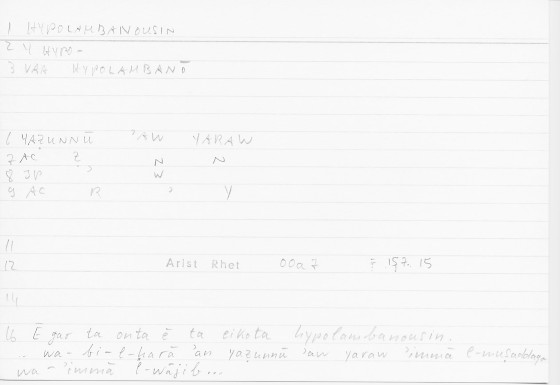 1 HYPOLAMBANOUSIN
2 4 HYPO-
3 VAA HYPOLAMBANŌ
6 YAẒUNNŪ ʾAW YARAW
7 AC Ẓ N N
8 IP ʾ W
9 AC R ʾ Y
11
12 Arist Rhet 00a 7 = 157. 15
14
16 Ē gar ta onta ē ta eikota hypolambanousin.
.. wa-bi-l-ḥarā ʾan yaẓunnū ʾaw yaraw ʾimmā
wa-ʾimmā l-wājib...